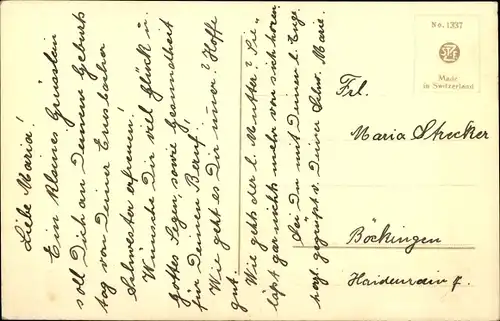 Liebe Maria!
Ein kleines Grüsslein
soll Dich an Deinem Geburts
tag von Deiner
Schwester erfreuen.
Wünsche Dir viel Glück u.
Gottes Segen, sowie Gesundheit
für Deinen Beruf.
Wie geht es Dir immer? Hoffe
gut.
Wie gehts der l. Mutter? Sie
läßt gar nichts mehr von sich hören.
Sei Du mit Deiner l.
herzl. gegrüßt v. Deiner Schw. Marie.
No. 1337
Made
in Switzerland
Frl.
Maria Stecker
Böckingen
Haidenrain 7.